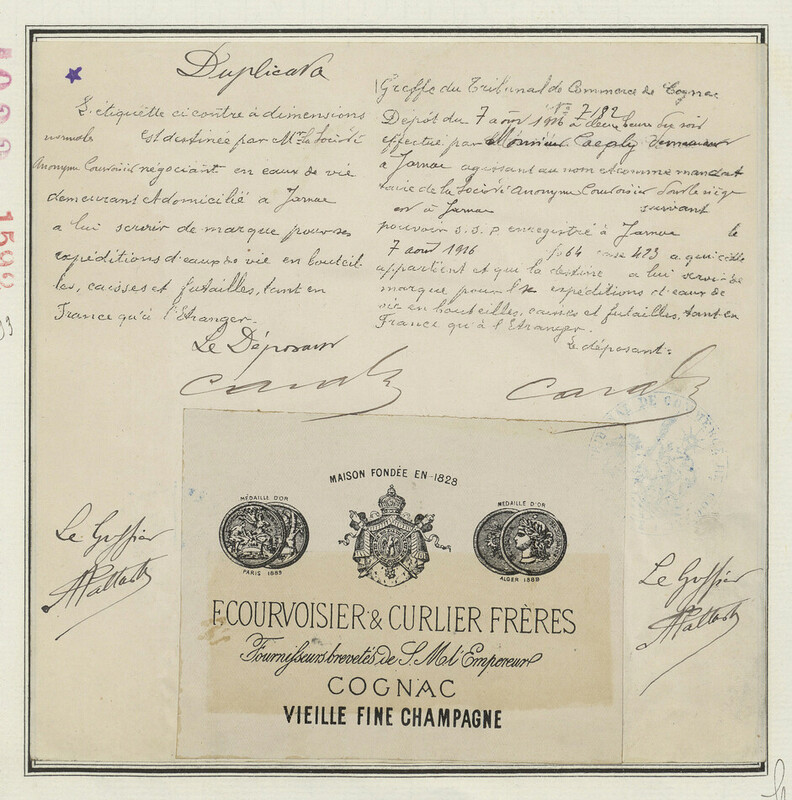 Duplicata
L'étiquette ci contre à dimensions
normale est destinée par Mr la Société
Anonyme Courvoisier négociant en eaux de vie
demeurant et domicilié à Jarnac
a lui servir de marque pour ses
expéditions d'eaux de vie en bouteil-
les, caisses et futailles, tant en
France qu'à l'Etranger.
Le Déposant
Greffe du Tribunal de Commerce de Cognac
Nº 7192
Dépôt du 7 août 1916 à deux heures du soir
effectué par Monsieur
à Jarnac agissant au nom et comme mandat
taire de la Société Anonyme Courvoisier dont le siège
est à Jarnac suivant
pouvoir s.s.p enregistré à Jarnac le
7 août 1916 fo 64 case 473 a qui cette
appartient et que la destine a lui servir de
marque pour expéditions d'eaux de
vie en bouteilles, caisses et futailles, tant en
France qu'à l'Etranger.
Le déposant:
MAISON FONDÉE EN 1828
MÉDAILLE D'OR
PARIS 1889
MÉDAILLE D'OR
ALGER 1889
F. COURVOISIER & CURLIER FRÈRES
Fournisseurs brevetés de S. M. l'Empereur
COGNAC
VIEILLE FINE CHAMPAGNE
Le Greffier
Le Greffier
1592